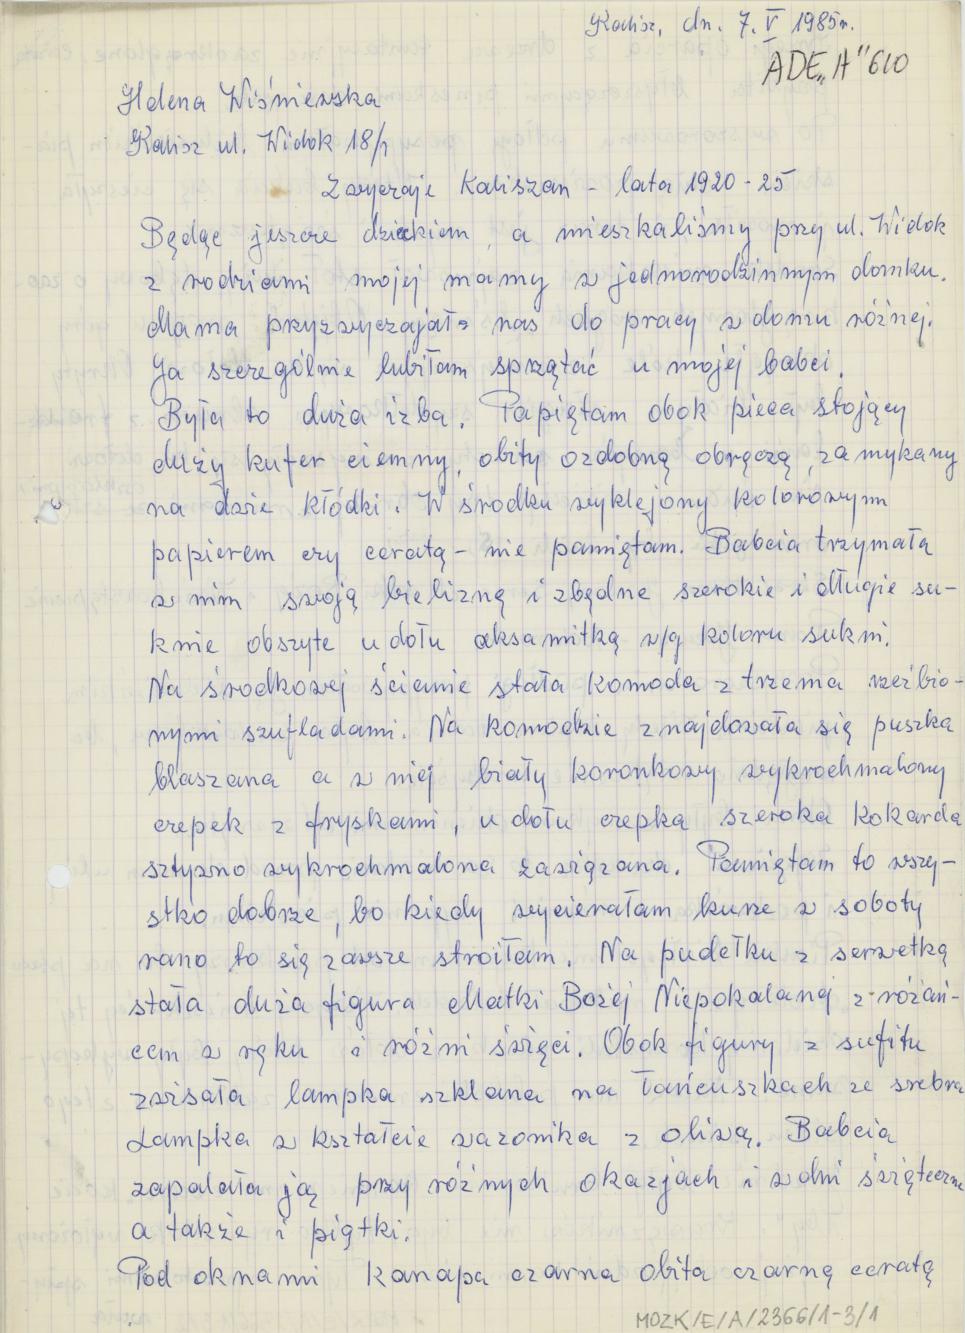 Kalisz, dn. 7. V 1985r.
ADE „A" 610
Helena Wiśniewska
Kalisz ul. Widok 18/1
Zwyczaje Kaliszan - lata 1920 - 25
Będąc jeszcze dzieckiem, a mieszkaliśmy przy ul. Widok
z rodzicami mojej mamy w jednorodzinnym domku.
Mama przyzwyczajała nas do pracy w domu różnej.
Ja szczególnie lubiłam sprzątać u mojej babci.
Była to duża izba. Papiętam obok pieca stojący
duży kufer ciemny, obity ozdobną obręczą, zamykany
na dwie kłódki. W środku wyklejony kolorowym
papierem czy ceratą - nie pamiętam. Babcia trzymała
w nim swoją bieliznę i zbędne szerokie i długie su-
knie obszyte u dołu aksamitką w/g koloru sukni.
Na środkowej ścianie stała komoda z trzema rzeźbio-
nymi szufladami. Na komodzie znajdowała się puszka
blaszana a w niej biały koronkowy wykrochmalony
czepek z fryskami, u dołu czepka szeroka kokarda
sztywno wykrochmalona zawiązana. Pamiętam to wszy-
stko dobrze, bo kiedy wycierałam kurze w soboty
rano to się zawsze stroiłam. Na pudełku z serwetką
stała duża figura Matki Bożej Niepokalanej z różań-
cem w ręku i różni święci. Obok figury z sufitu
zwisała lampka szklana na łańcuszkach ze srebra
Lampka w kształcie wazonika z oliwą. Babcia
zapalała ją przy różnych okazjach i w dni świąteczne
a także i piątki.
Pod oknami kanapa czarna obita czarną ceratą
MOZK/E/A/2366/1-3/1